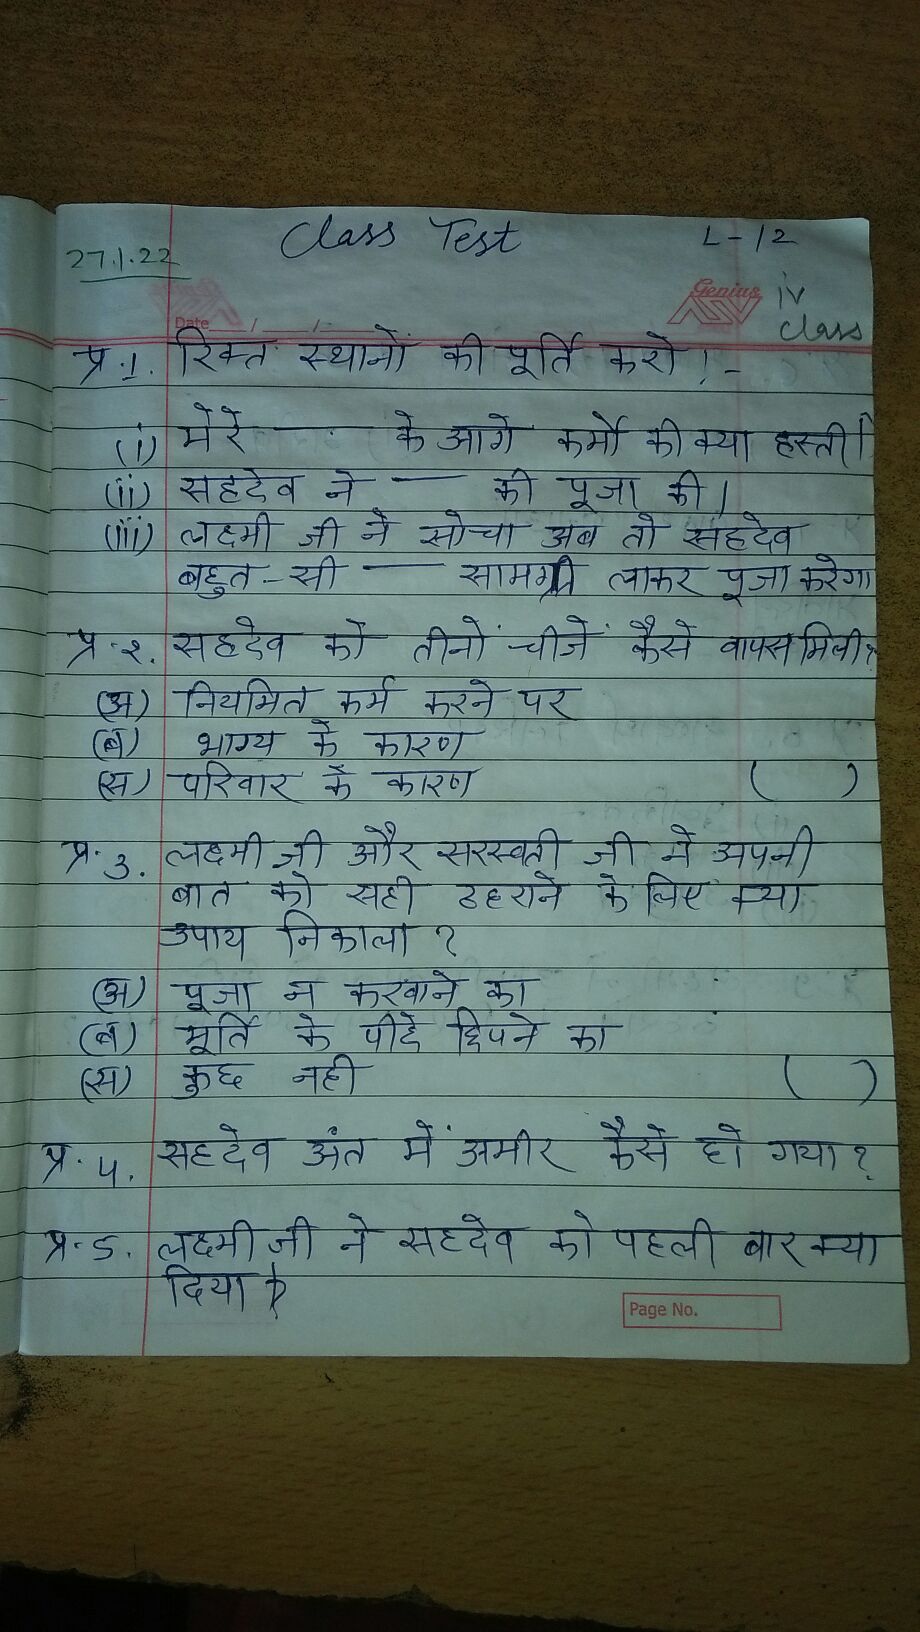 Class Test L-12
27.1.22
Genius
iv
Class
Date / /
प्र.1. रिक्त स्थानों की पूर्ति करो!-
(i) मेरे — के आगे कर्मों की क्या हस्ती।
(ii) सहदेव ने — की पूजा की।
(iii) लक्ष्मी जी ने सोचा अब तो सहदेव
बहुत-सी — सामग्री लाकर पूजा करेगा
प्र.2. सहदेव को तीनों चीजें कैसे वापस मिली?
(अ) नियमित कर्म करने पर
(ब) भाग्य के कारण
(स) परिवार के कारण ( )
प्र.3. लक्ष्मी जी और सरस्वती जी ने अपनी
बात को सही ठहराने के लिए क्या
उपाय निकाला?
(अ) पूजा न करवाने का
(ब) मूर्ति के पीछे छिपने का
(स) कुछ नही ( )
प्र.4. सहदेव अंत में अमीर कैसे हो गया?
प्र.5. लक्ष्मी जी ने सहदेव को पहली बार क्या
दिया?
Page No.